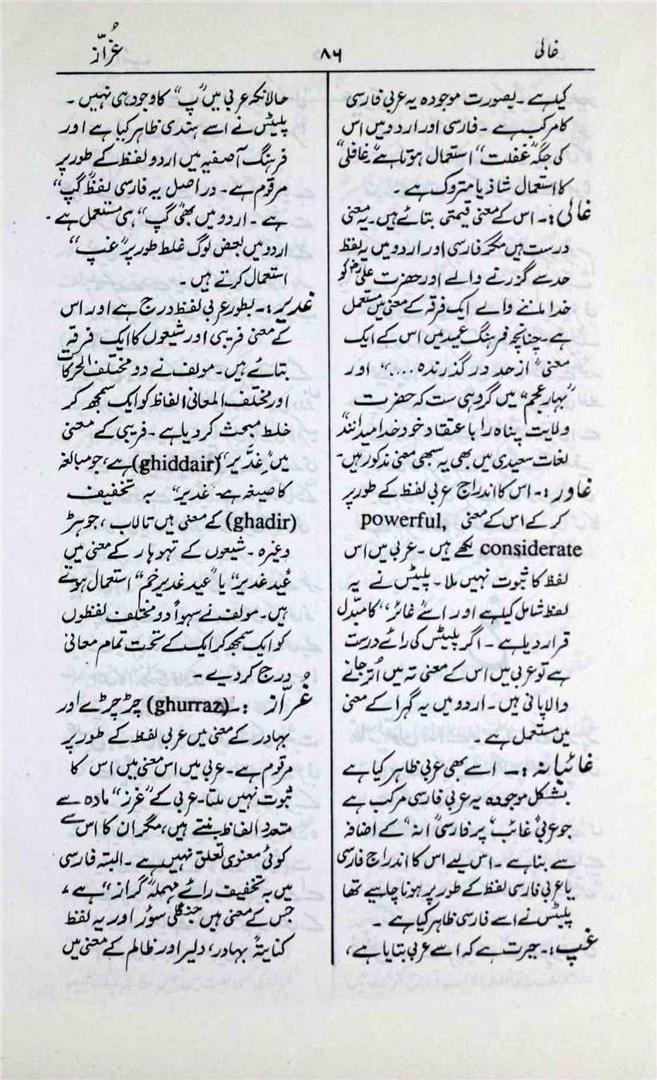 خالی
۸۶
غُرّاز
کیا ہے ۔ بصورت موجودہ یہ عربی فارسی
کا مرکب ہے ۔ فارسی اور اردو میں اس
کی جگہ ”غفلت“ استعمال ہوتا ہے ”غافلی“
کا استعمال شاذ یا متروک ہے ۔
غالی :۔ اس کے معنی قیمتی بتائے ہیں۔ یہ معنی
درست ہیں مگر فارسی اور اردو میں یہ لفظ
حد سے گزرنے والے اور حضرت علیؓ کو
خدا ماننے والے ایک فرقہ کے معنی میں مستعمل
ہے۔ چنانچہ فرہنگ عمید میں اس کے ایک
معنی ”از حد در گذرندہ ....“ اور
”بہار عجم“ میں گروہی ست کہ حضرت
ولایت پناہ را با عتقاد خود خدا میدانند“
لغات سعیدی میں بھی یہ سبھی معنی مذکور ہیں۔
غاور :۔ اس کا اندراج عربی لفظ کے طور پر
کر کے اس کے معنی powerful,
considerate لکھے ہیں ۔ عربی میں اس
لفظ کا ثبوت نہیں ملا۔ پلیٹس نے یہ
لفظ شامل کیا ہے اور اسے ”غائر“ کا مبدّل
قرار دیا ہے ۔ اگر پلیٹس کی رائے درست
ہے تو عربی میں اس کے معنی تہ میں اُتر جانے
والا پانی ہیں ۔ اردو میں یہ گہرا کے معنی
میں مستعمل ہے ۔
غائبانہ :۔ اسے بھی عربی ظاہر کیا ہے
بشکل موجودہ یہ عربی فارسی مرکب ہے
جو عربی ’غائب‘ پر فارسی ’انہ‘ کے اضافہ
سے بنا ہے ۔ اس لیے اس کا اندراج فارسی
یا عربی فارسی لفظ کے طور پر ہونا چاہیے تھا
پلیٹس نے اسے فارسی ظاہر کیا ہے ۔
غپ :۔ حیرت ہے کہ اسے عربی بتایا ہے ،
حالانکہ عربی میں ”پ“ کا وجود ہی نہیں ۔
پلیٹس نے اسے ہندی ظاہر کیا ہے اور
فرہنگ آصفیہ میں اردو لفظ کے طور پر
مرقوم ہے ۔ در اصل یہ فارسی لفظ ”گپ“
ہے ۔ اردو میں بھی ”گپ“ ہی مستعمل ہے ۔
اردو میں بعض لوگ غلط طور پر ”غپ“
استعمال کرتے ہیں ۔
غدیر :۔ بطور عربی لفظ درج ہے اور اس
کے معنی فریبی اور شیعوں کا ایک فرقہ
بتائے ہیں ۔ مولف نے دو مختلف الحرکات
اور مختلف المعانی الفاظ کو ایک سمجھ کر
خلط مبحث کر دیا ہے ۔ فریبی کے معنی
میں ”غدّیر“ (ghiddair) ہے، جو مبالغہ
کا صیغہ ہے۔ ”غدیر“ بہ تخفیف
(ghadir) کے معنی ہیں تالاب ، جوہڑ
وغیرہ ۔ شیعوں کے تہوہار کے معنی میں
’عید غدیر‘ یا ’عید غدیر خم‘ استعمال ہوتے
ہیں ۔ مولف نے سہواً دو مختلف لفظوں
کو ایک سمجھ کر ایک کے تحت تمام معانی
درج کر دیے ۔
غُرّاز :۔ (ghurraz) چڑچڑے اور
بہادر کے معنی میں عربی لفظ کے طور پر
مرقوم ہے ۔ عربی میں اس معنی میں اس کا
ثبوت نہیں ملتا۔ عربی کے ”غرز“ مادہ سے
متعدد الفاظ بنتے ہیں، مگر ان کا اس سے
کوئی معنوی تعلق نہیں ہے ۔ البتہ فارسی
میں بہ تخفیف رائے مہملہ ”گراز“ ہے ،
جس کے معنی ہیں جنگلی سوٗر اور یہ لفظ
کنایتہً بہادر، دلیر اور ظالم کے معنی میں